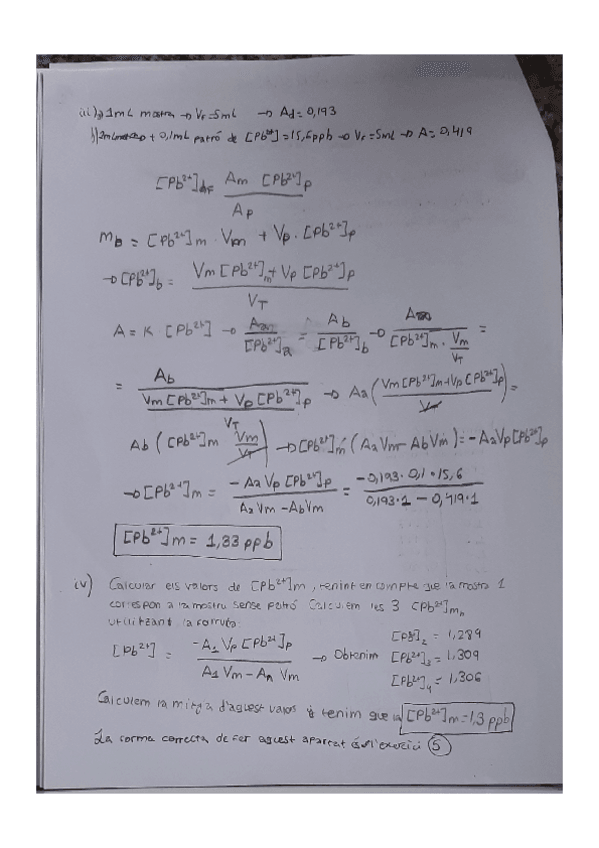 iii) a) 1mL mostra → VF=5mL → Aa=0,193
b) 1mL + 0,1mL patró de [Pb²⁺]=15,6ppb → VF=5mL → A=0,419
[Pb²⁺] Am [Pb²⁺]p
Ap
mb = [Pb²⁺]m · Vm + Vp · [Pb²⁺]p
→ [Pb²⁺]b = Vm [Pb²⁺]m + Vp [Pb²⁺]p
VT
A = K · [Pb²⁺] → Aa / [Pb²⁺]a = Ab / [Pb²⁺]b → Aa / [Pb²⁺]m · Vm/VT =
= Ab / (Vm [Pb²⁺]m + Vp [Pb²⁺]p / VT) → Aa (Vm [Pb²⁺]m + Vp [Pb²⁺]p / VT) =
Ab ([Pb²⁺]m Vm/VT) → [Pb²⁺]m (AaVm - AbVm) = -AaVp[Pb²⁺]p
→ [Pb²⁺]m = -Aa Vp [Pb²⁺]p / Aa Vm - AbVm = -0,193 · 0,1 · 15,6 / 0,193·1 - 0,419·1
[Pb²⁺]m = 1,33 ppb
iv) Calcular els valors de [Pb²⁺]m, tenint en compte que la mostra 1
correspon a la mostra sense patró. Calculem les 3 [Pb²⁺]m,
utilitzant la fórmula:
[Pb²⁺] = -A1 Vp [Pb²⁺]p / A1 Vm - An Vm → Obtenim
[Pb²⁺]2 = 1,289
[Pb²⁺]3 = 1,309
[Pb²⁺]4 = 1,306
Calculem la mitja d'aquest valors i tenim que la [Pb²⁺]m = 1,3 ppb
La forma correcta de fer aquest apartat és l'exercici 5